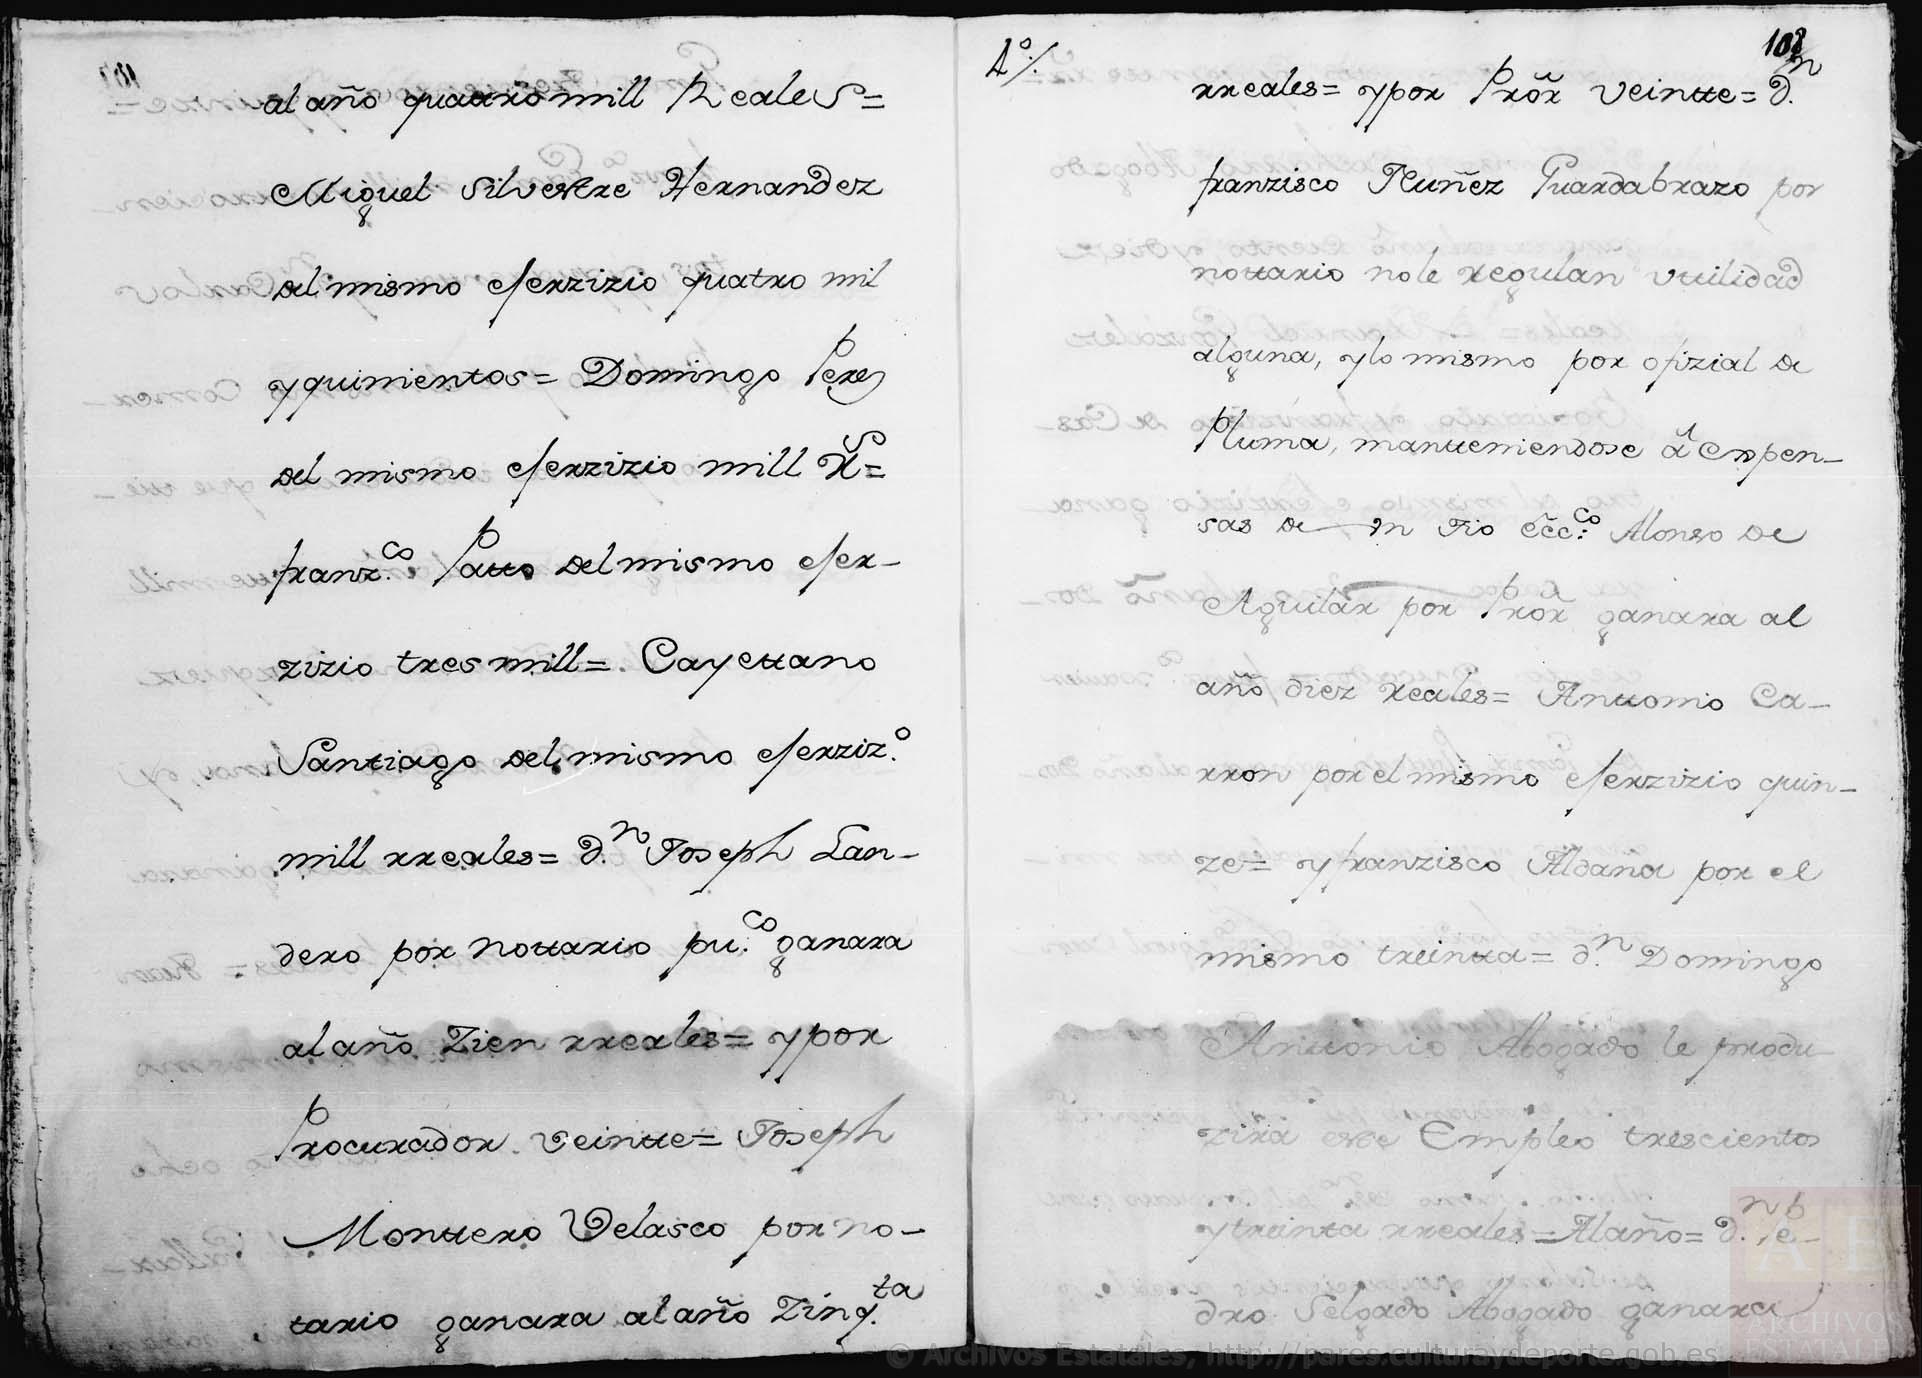 al año quattro mill Reales=
Miguel Silvestre Hernandez
del mismo eferzizio quatro mil
y quinientos= Domingo Perez
del mismo eferzizio mill Rs=
franzco. Patto del mismo efer-
zizio tres mill= Cayettano
Santiago del mismo eferzizo.
mill rreales= Dn. Joseph Lan-
dero por nottario puco. ganara
al año Zien rreales= y por
Procurador veintte= Joseph
Monttero Velasco por no-
tario ganara al año Zinqta.
108
rreales= y por Pror veintte= Dn.
franzisco Nuñez Guardabrazo por
nottario no le regulan vtilidad
alguna, y lo mismo por ofizial de
Pluma, mantteniendose à expen-
sas de un tio eccco: Alonso de
Aguilar por Pror ganara al
año diez reales= Anttonio Ca-
rron por el mismo eferzizio quin-
ze= y franzisco Aldaña por el
mismo treintta= Dn. Domingo
Anttonio Abogado le produ-
zira este Empleo trescientos
y treinta rreales= Al año= Dn. Pe-
dro Selgado Abogado ganara
© Archivos Estatales, http://pares.culturaydeporte.gob.es
AE
ARCHIVOS
ESTATALES